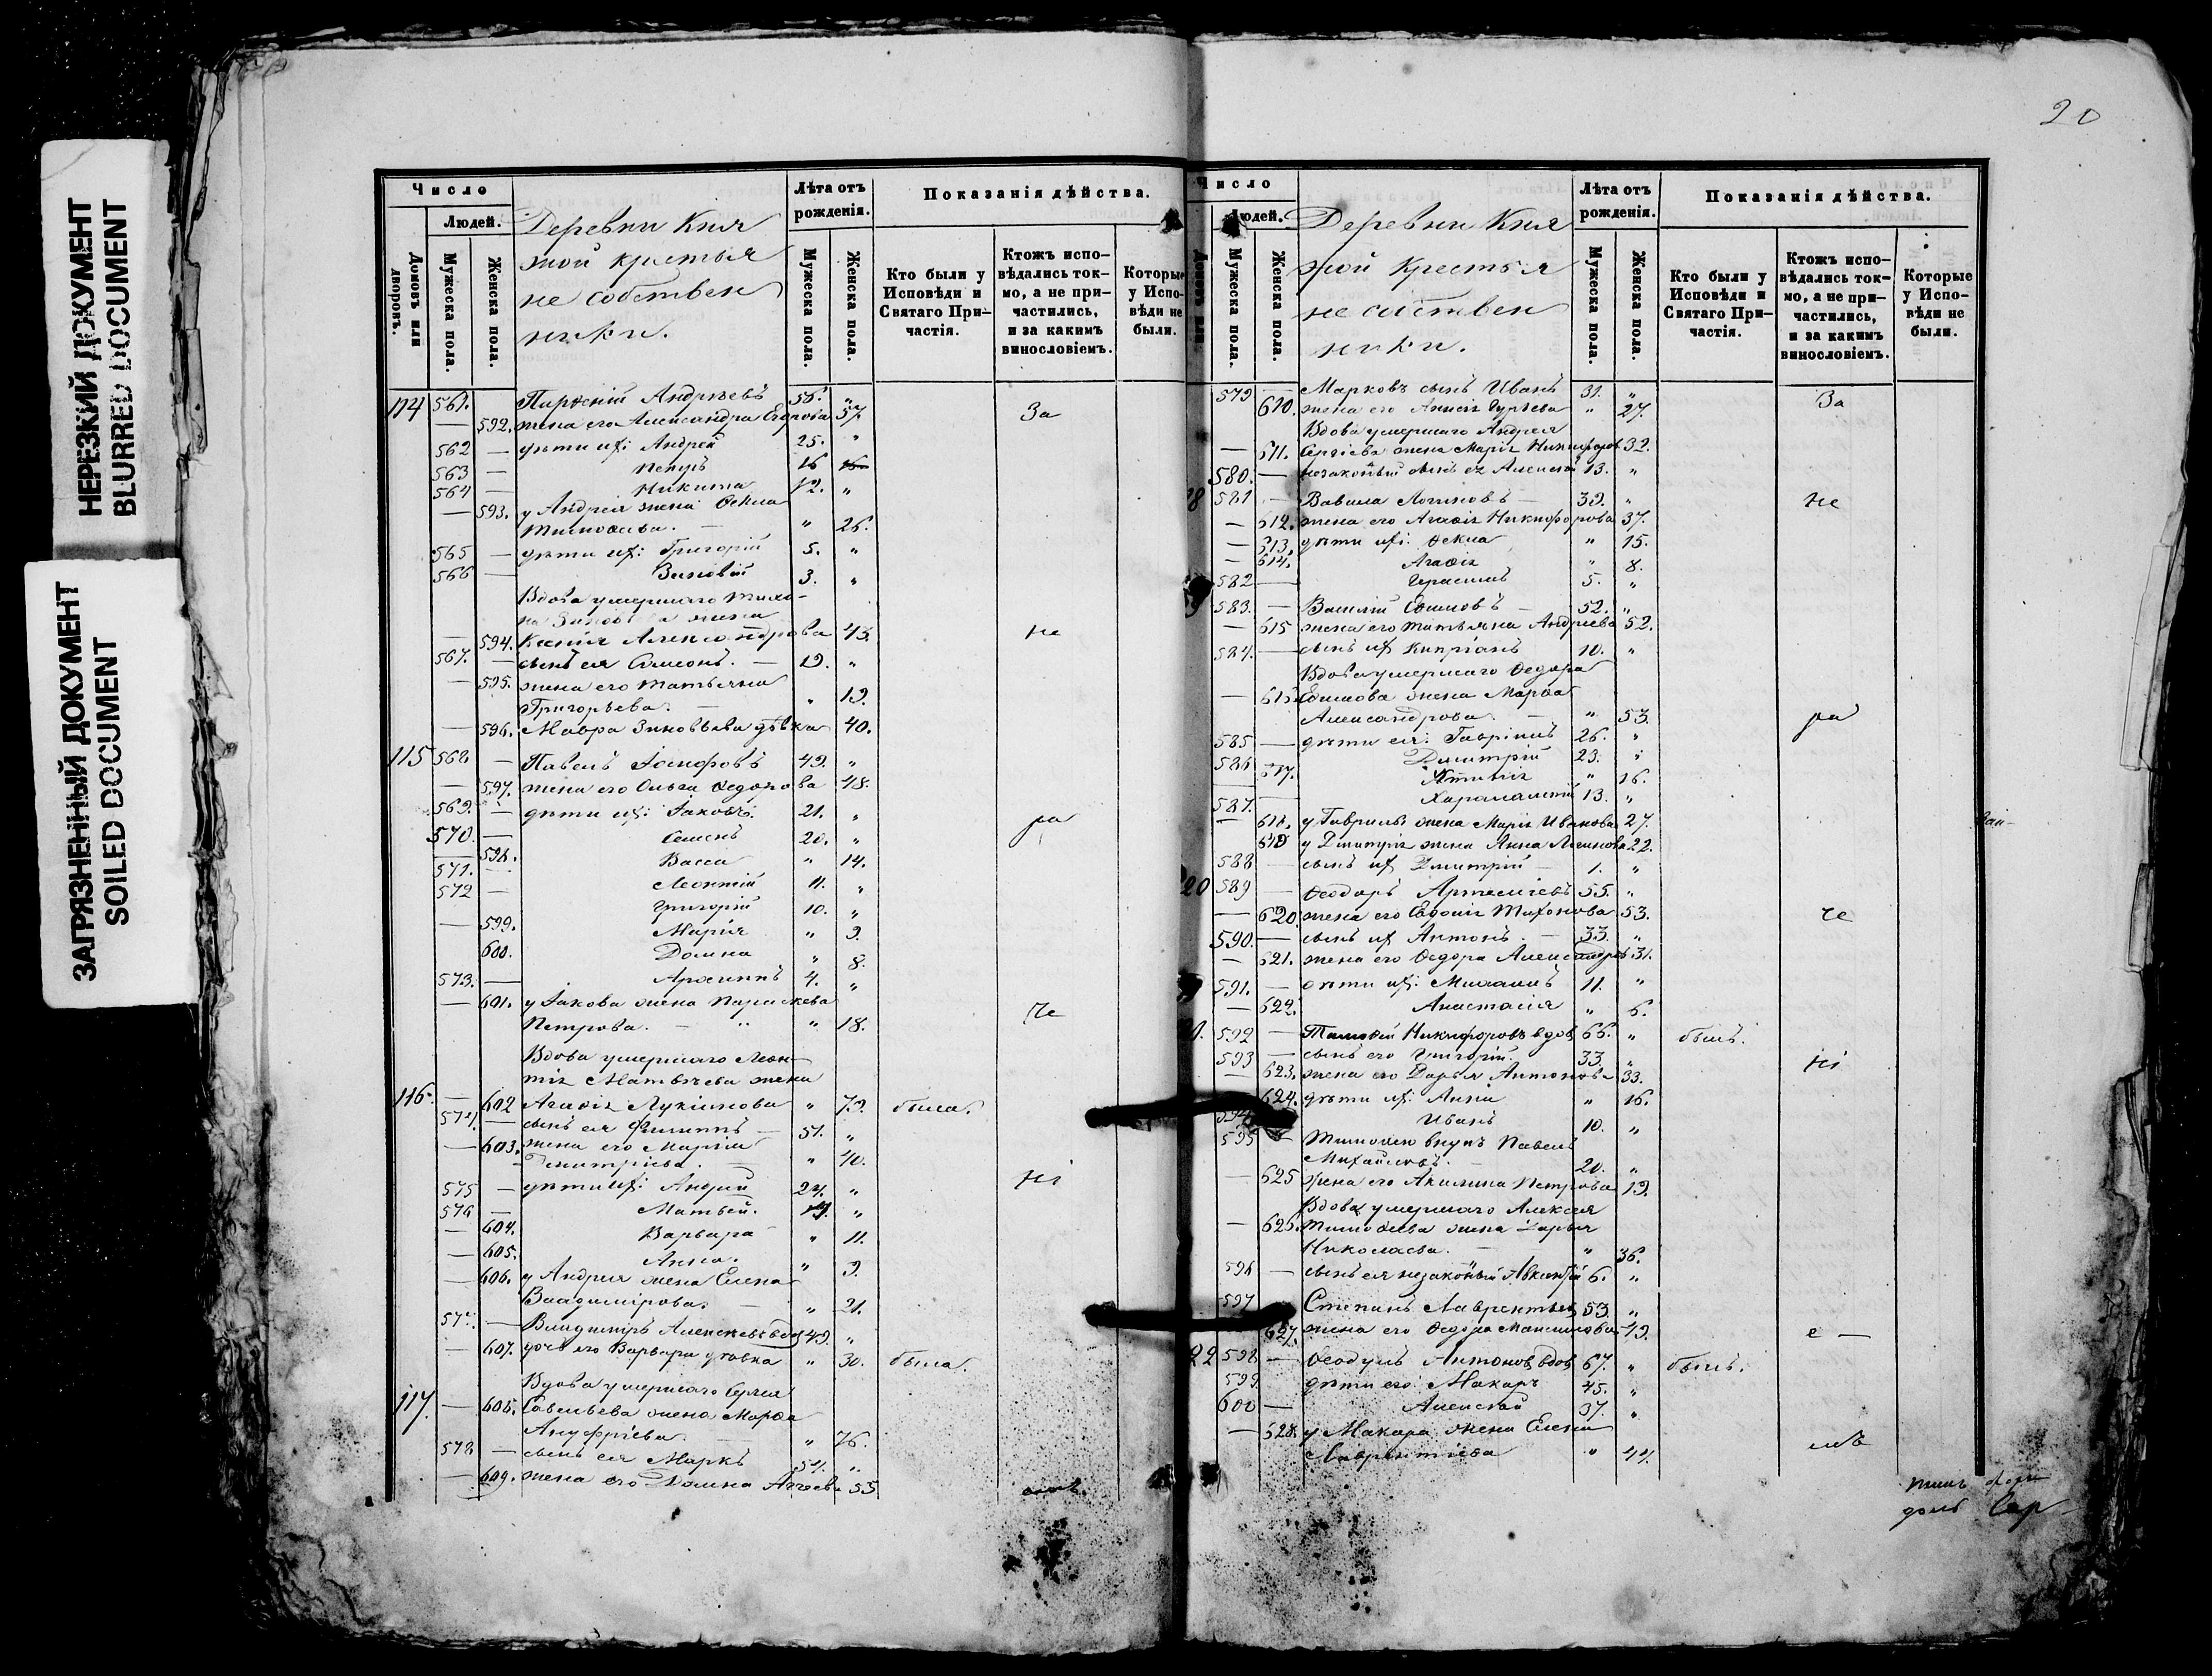 НЕРЕЗКИЙ ДОКУМЕНТ
BLURRED DOCUMENT
ЗАГРЯЗНЕННЫЙ ДОКУМЕНТ
SOILED DOCUMENT
Число
Людей.
Домовъ или дворовъ.
Мужеска пола.
Женска пола.
Деревни Кня
жой крестья
не собствен
ники.
Лѣта отъ рожденія.
Мужеска пола.
Женска пола.
Показанія дѣйства.
Кто были у Исповѣди и Святаго Причастія.
Ктожъ исповѣдались токмо, а не причастились, и за какимъ винословіемъ.
Которые у Исповѣди не были.
114 561. Андреевъ 58. „ За
— 592. жена его Александра Егорова 57.
562 — дѣти их: Андрей 25. „
563 — Петръ 16
564 — Никита 12. „
— 593. у Андрея жена Ѳекла
Тимоѳеева. — „ 26.
565 — дѣти их: Григорій 5. „
566 — Зиновій 3. „
Вдова умершаго
жена
— 594. Ксенія Александрова 43. не
567. — сынъ ея Симеонъ. — 19. „
— 595. жена его Татьяна
Григорьева. — „ 19.
— 596. Мавра Зиновьева дѣвка 40.
115 568 — Павелъ Іосифовъ 49. „
— 597. жена его Ольга Ѳедорова 48.
569. — дѣти их: Іаковъ. 21. „
570. — Семенъ 20. „ ра
598. Васса „ 14.
571. — Леонтій 11. „
572 — Григорій 10. „
— 599. Марія „ 9.
600. Домна „ 8.
573. — Архиппъ 4. „
— 601. у Іакова жена Параскева
Петрова. — „ 18. че
Вдова умершаго Леон-
тія Матвѣева жена
116. — 602 Агаѳія Лукіянова „ 79. была.
574. — сынъ ея Филиппъ — 51. „
— 603. жена его Марѳа
Димитріева. — „ 40.
575 — дѣти их: Андрей 24. „ ні
576 — Матвей. „
— 604. Варвара „ 11.
— 605. Анна. „ 9.
— 606. у Андрея жена Елена
Владимірова. — „ 21.
577. — Владиміръ Алексеевъ вдов 49. „
— 607. дочь его Варвара дѣвка „ 30. была.
Вдова умершаго Сергея
117. — 608. Савельева жена Марѳа
Ануфріева — „ 76.
578 — сынъ ея Маркъ 54. „
— 609. жена его Домна 55
20
Число
Людей.
Мужеска пола.
Женска пола.
Деревни Кня
жой Крестья
не собствен
ники.
Лѣта отъ рожденія.
Мужеска пола.
Женска пола.
Показанія дѣйства.
Кто были у Исповѣди и Святаго Причастія.
Ктожъ исповѣдались токмо, а не причастились, и за какимъ винословіемъ.
Которые у Исповѣди не были.
579 — Марковъ сынъ Иванъ 31. „ За
610. жена его Гурьева „ 27.
Вдова умершаго Андрея
— 611. Сергіева жена Марія Никифоров 32.
580. — незаконый сынъ ея Алексей 13. „
581 — Вавила Логиновъ — 39. „ не
— 612. жена его Агаѳія Никифорова 37.
— 613. дѣти их: Ѳекла „ 15.
— 614. Агаѳія „ 8.
582 — Герасимъ 5. „
583. — Василій Ефимовъ — 52. „
— 615 жена его Татьяна Андреева 52.
584. — сынъ их Кипріанъ 10. „
Вдова умершаго Ѳедора
— 616 Ефимова жена Марѳа
Александрова. — „ 53. ра
585 — дѣти ея: Гавріилъ 26. „
586 Димитрій 23. „
617. „ 16.
587. — Харалампій 13. „
— 618. у Гавріила жена Марія Иванова 27.
619 у Димитрія жена Анна Логинова 22.
588 — сынъ их Димитрій — 1. „
589 — Ѳеодоръ 55. „
— 620 жена его Евдокія Тихонова 53. че
590. — сынъ их Антонъ. — 33. „
— 621. жена его Ѳедора Александров 31.
591. — дѣти их: Михаилъ 11. „
— 622. Анастасія „ 6.
592 — Тимоѳей Никифоровъ вдов 66. „ былъ.
593 — сынъ его Григорій. 33. „ ні
— 623. жена его Дарья Антонова 33.
624. дѣти их: Анна „ 16.
594 Иванъ 10. „
595 — Тимоѳея внукъ Павелъ
Михайловъ. — 20. „
— 625 жена его Акилина Петрова 19.
Вдова умершаго Алексея
— 626. Тимоѳеева жена Дарья
Николаева. — „ 36.
596 — сынъ ея незаконый 6. „
597 Степанъ Лаврентьев 53. „
627. жена его Ѳедора Максимова 49. е —
22 598 — Ѳеодулъ Антонов вдов 67. „ былъ.
599. дѣти его: Макаръ 45. „
600 — Алексей 37. „
— 628. у Макара жена Елена
Лаврентіева „ 44. мъ